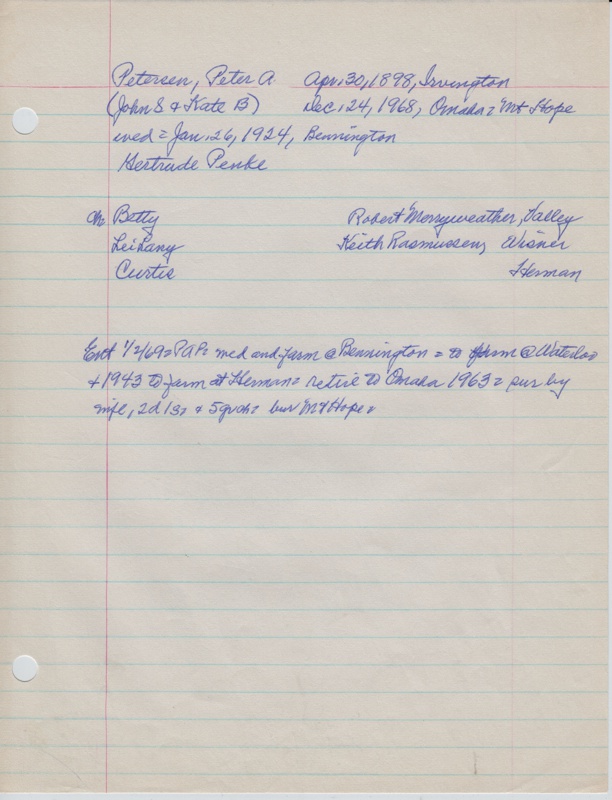 Petersen, Peter A Apr. 30, 1898, Irvington
(John S & Kate B) Dec. 24, 1968, Omaha = Mt Hope
wed = Jan. 26, 1924, Bennington
Gertrude Penke
ch Betty Robert Merryweather, Valley
LeiLany Keith Rasmussen, Wisner
Curtis Herman
Ent 1/2/69 = PAP = wed and farm @ Bennington = to farm @ Waterloo
+ 1943 to farm at Herman = retire to Omaha 1963 = sur by
wife, 2d 1s, + 5grch = bur Mt Hope =